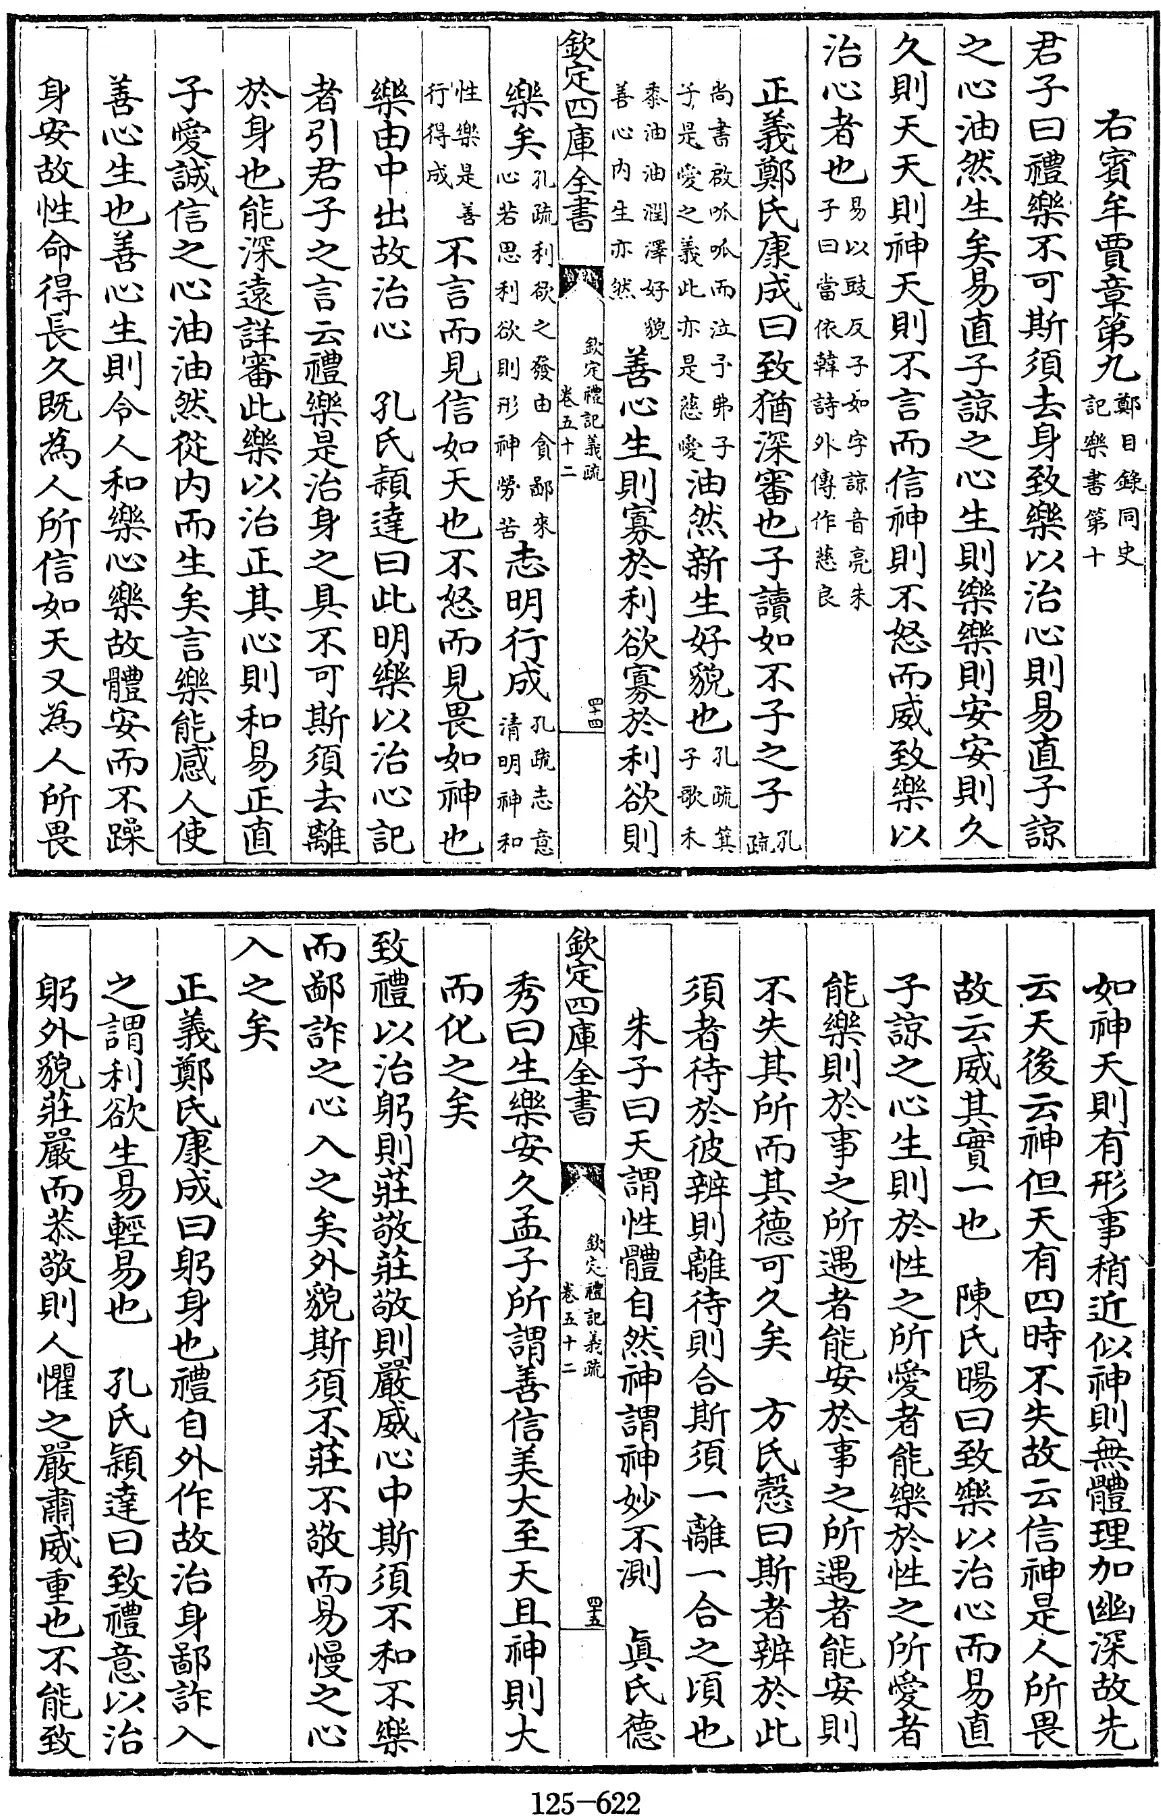 右賓牟賈章第九鄭目錄同史記樂書第十
君子曰禮樂不可斯須去身致樂以治心則易直子諒
之心油然生矣易直子諒之心生則樂樂則安安則久
久則天天則神天則不言而信神則不怒而威致樂以
治心者也易以豉反子如字諒音亮朱子曰當依韓詩外傳作慈良
正義鄭氏康成曰致猶深審也子讀如不子之子孔疏
尚書啟呱呱而泣予弗子子是愛之義此亦是慈愛油然新生好貌也孔疏箕子歌禾
黍油油潤澤好貌善心內生亦然善心生則寡於利欲寡於利欲則
欽定四庫全書
欽定禮記義疏
卷五十二
四十四
樂矣孔疏利欲之發由貪鄙來心若思利欲則形神勞苦志明行成孔疏志意清明神和
性樂是善行得成不言而見信如天也不怒而見畏如神也
樂由中出故治心 孔氏穎達曰此明樂以治心記
者引君子之言云禮樂是治身之具不可斯須去離
於身也能深遠詳審此樂以治正其心則和易正直
子愛誠信之心油油然從內而生矣言樂能感人使
善心生也善心生則令人和樂心樂故體安而不躁
身安故性命得長久既為人所信如天又為人所畏
如神天則有形事稍近似神則無體理加幽深故先
云天後云神但天有四時不失故云信神是人所畏
故云威其實一也 陳氏暘曰致樂以治心而易直
子諒之心生則於性之所愛者能樂於性之所愛者
能樂則於事之所遇者能安於事之所遇者能安則
不失其所而其德可久矣 方氏慤曰斯者辨於此
須者待於彼辨則離待則合斯須一離一合之頃也
朱子曰天謂性體自然神謂神妙不測 眞氏德
欽定四庫全書
欽定禮記義疏
卷五十二
四十五
秀曰生樂安久孟子所謂善信美大至天且神則大
而化之矣
致禮以治躬則莊敬莊敬則嚴威心中斯須不和不樂
而鄙詐之心入之矣外貌斯須不莊不敬而易慢之心
入之矣
正義鄭氏康成曰躬身也禮自外作故治身鄙詐入
之謂利欲生易輕易也 孔氏穎達曰致禮意以治
躬外貌莊嚴而恭敬則人懼之嚴肅威重也不能致
125-622